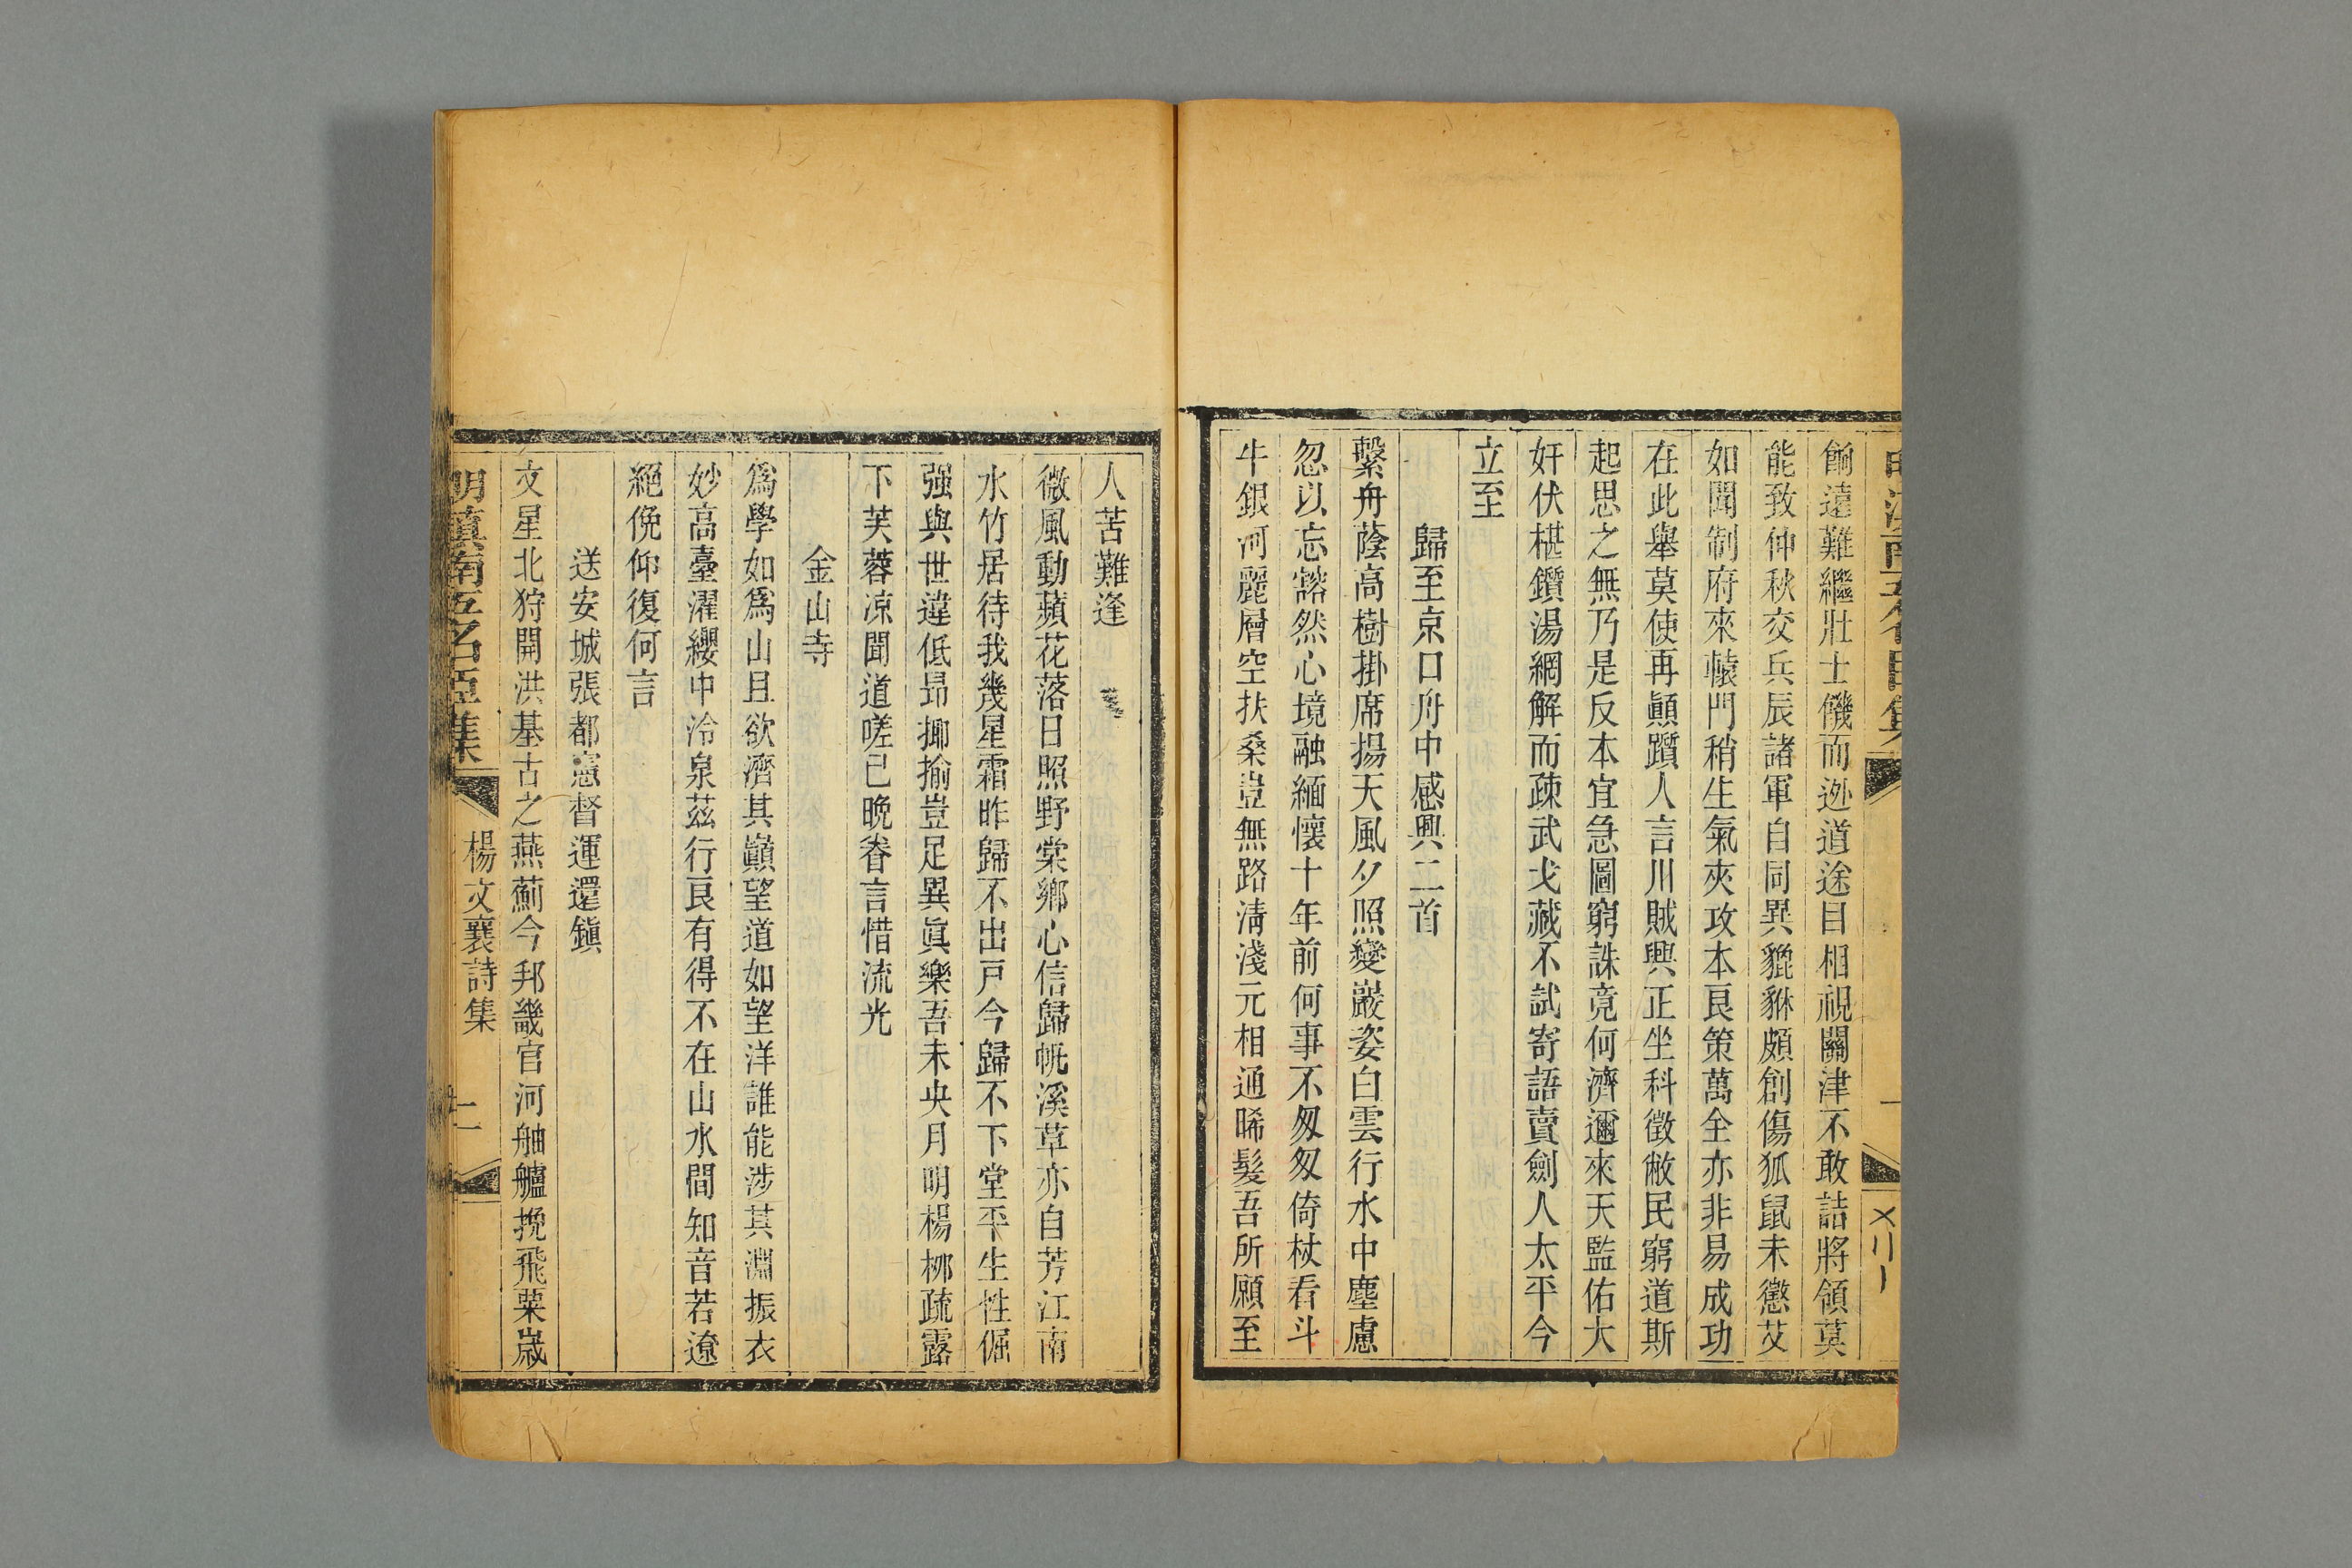 餉遠難繼壯士饑而逊道途目相視關津不敢詰將領莫
能致仲秋交兵辰諸軍自同異貔貅頗創傷狐鼠未懲艾
如聞制府來轅門稍生氣夾攻本良策萬全亦非易成功
在此舉莫使再顚躓人言川賊興正坐科徵敝民窮道斯
起思之無乃是反本宜急圖窮誅竟何濟邇來天監佑大
奸伏椹鑕湯網解而疎武戈藏不試寄語賣劍人太平今
立至
歸至京口舟中感興二首
繫舟蔭高樹掛席揚天風夕照變巖姿白雲行水中塵慮
忽以忘豁然心境融緬懷十年前何事不匆匆倚杖看斗
牛銀河麗層空扶桑豈無路淸淺元相通晞髮吾所願至
人苦難逢
微風動蘋花落日照野棠鄉心信歸帆溪草亦自芳江南
水竹居待我幾星霜昨歸不出戸今歸不下堂平生性倔
强與世違低昻揶揄豈足異眞樂吾未央月明楊栁疏露
下芙蓉凉聞道嗟已晚眷言惜流光
金山寺
爲學如爲山且欲濟其巓望道如望洋誰能涉其淵振衣
妙高臺濯纓中泠泉茲行良有得不在山水間知音若遼
絕俛仰復何言
送安城張都憲督運還鎭
文星北狩開洪基古之燕薊今邦畿官河舳艫挽飛粟歲
明滇南五名臣集
楊文襄詩集
二